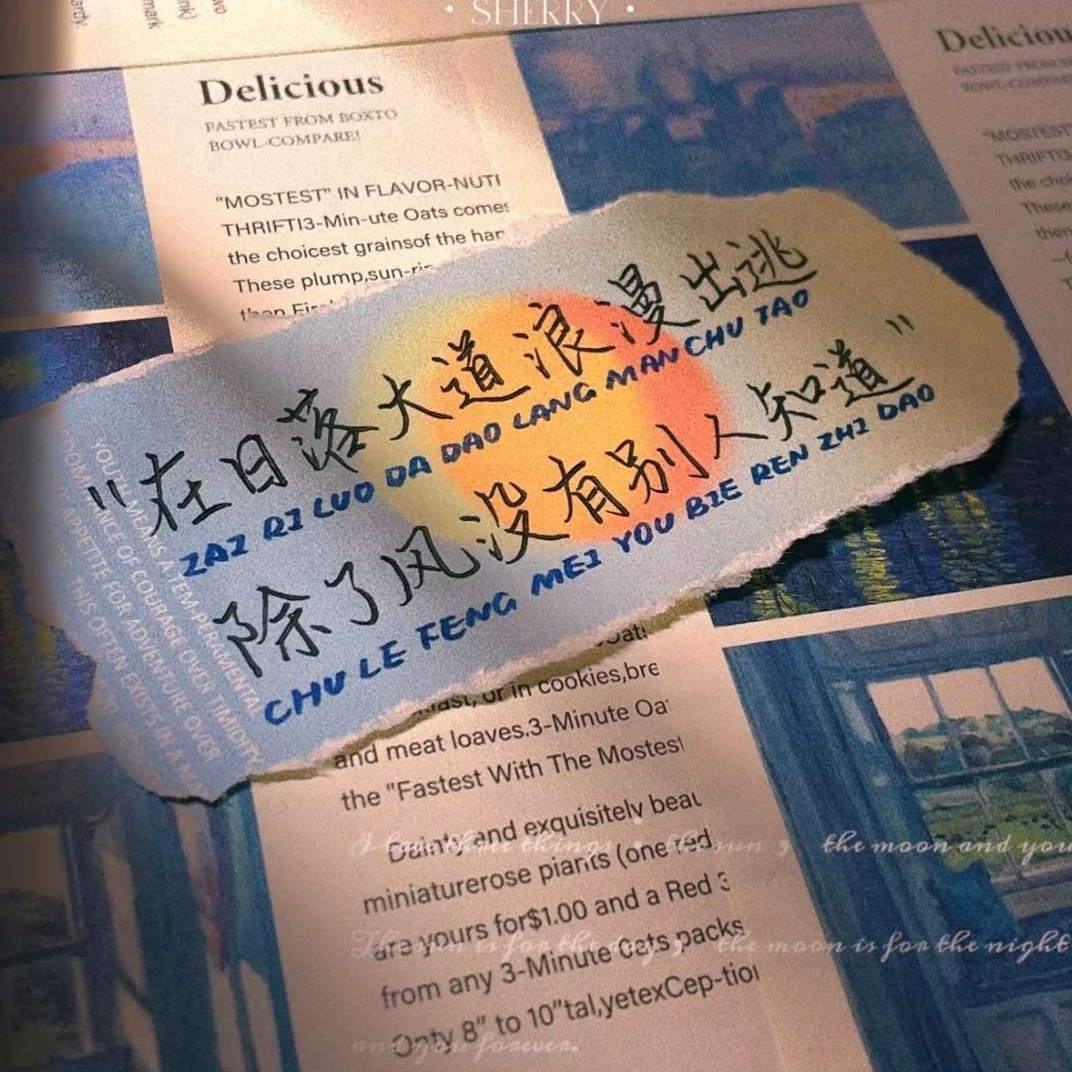 • SHERRY •
Delicious
FASTEST FROM BOXTO
BOWL-COMPARE!
"MOSTEST" IN FLAVOR-NUTI
THRIFTI3-Min-ute Oats comes
the choicest grainsof the har
These plump,sun-ri
than Fir
Deliciou
FASTEST FROM
BOWL-COMPA
"MOSTEST
THRIFTI3
the choi
These
then
"在日落大道浪漫出逃
ZAI RI LUO DA DAO LANG MAN CHU TAO
除了风没有别人知道"
CHU LE FENG MEI YOU BIE REN ZHI DAO
A TEM-PERAMENTAL
NICE OF COURAGE OVER TIMIDITY
APPETITE FOR ADVENTURE OVER
THIS OFTEN EXISTS IN A MA
or in cookies,bre
and meat loaves.3-Minute Oa
the "Fastest With The Mostest
Dainty,and exquisitely beau
miniaturerose piants (one red
are yours for$1.00 and a Red 3
from any 3-Minute cats packs
Only 8" to 10"tal,yetexCep-tion
I love three things , the sun , the moon and you
The sun is for the day , the moon is for the night
and you forever.